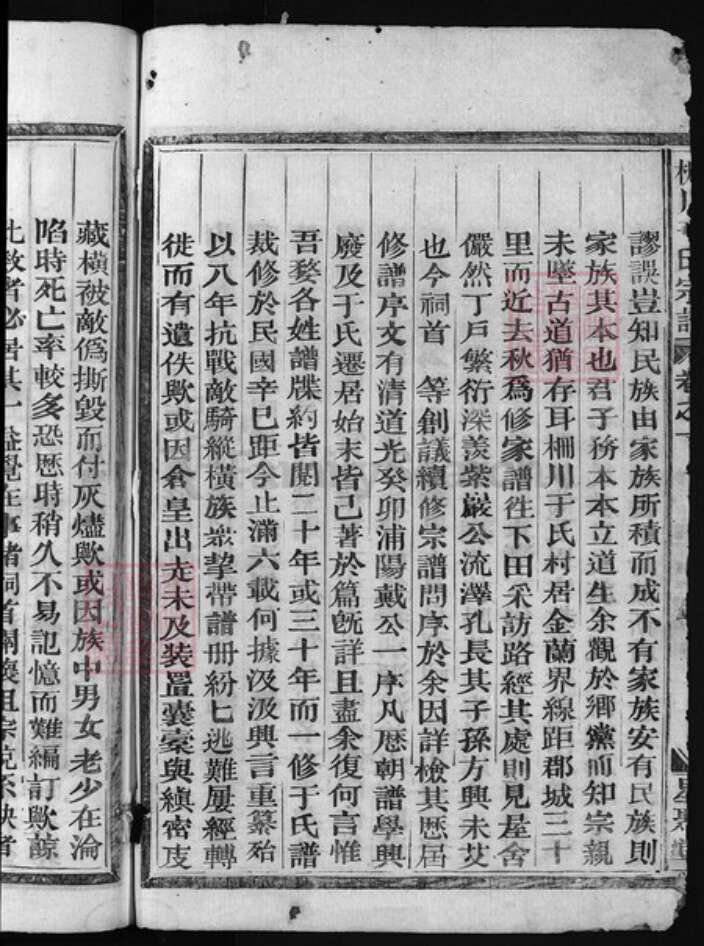 謬誤豈知民族由家族所積而成不有家族安有民族則
家族其本也君子務本本立道生余觀於鄉黨而知宗親
未墜古道猶存耳柵川于氏村居金蘭界線距郡城三十
里而近去秋爲修家譜徃下田采訪路經其處則見屋舍
儼然丁戶繁衍深羨紫巖公流澤孔長其子孫方興未艾
也今祠首 等創議續修宗譜問序於余因詳檢其歷屆
修譜序文有清道光癸卯浦陽戴公一序凡歷朝譜學興
廢及于氏遷居始末皆己著於篇旣詳且盡余復何言惟
吾婺各姓譜牒約皆閱二十年或三十年而一修于氏譜
裁修於民國辛巳距今止滿六載何據汲汲興言重纂殆
以八年抗戰敵騎縱橫族衆挈帶譜冊紛匕逃難屢經轉
徙而有遺佚歟或因倉皇出走未及装置囊槖與縝密庋
藏橫被敵僞撕毀而付灰燼歟或因族中男女老少在淪
陷時死亡率較多恐歷時稍久不易記憶而難編訂歟諒